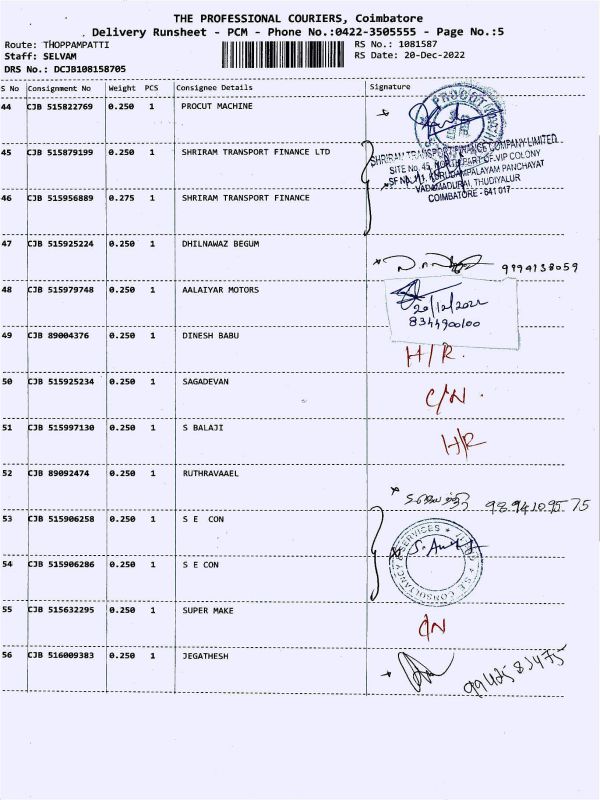 THE PROFESSIONAL COURIERS, Coimbatore
Delivery Runsheet - PCM - Phone No.:0422-3505555 - Page No.:5
Route: THOPPAMPATTI
RS No.: 1081587
Staff: SELVAM
RS Date: 20-Dec-2022
DRS No.: DCJB108158705
S No Consignment No Weight PCS Consignee Details Signature
44 CJB 515822769 0.250 1 PROCUT MACHINE
PROCUT
45 CJB 515879199 0.250 1 SHRIRAM TRANSPORT FINANCE LTD
SHRIRAM TRANSPORT FINANCE COMPANY LIMITED
SITE No. 45, NORTH PART OF VIP COLONY
SF No. KURUDAMPALAYAM PANCHAYAT
VADAMADURAI, THUDIYALUR
COIMBATORE - 641 017
46 CJB 515956889 0.275 1 SHRIRAM TRANSPORT FINANCE
47 CJB 515925224 0.250 1 DHILNAWAZ BEGUM
9994138059
48 CJB 515979748 0.250 1 AALAIYAR MOTORS
20/12/2022
8344900100
49 CJB 89004376 0.250 1 DINESH BABU
H/R.
50 CJB 515925234 0.250 1 SAGADEVAN
C/N.
51 CJB 515997130 0.250 1 S BALAJI
H/R
52 CJB 89092474 0.250 1 RUTHRAVAAEL
98.94.10.95.75
53 CJB 515906258 0.250 1 S E CON
54 CJB 515906286 0.250 1 S E CON
S.E. CONSULTANCY SERVICES
55 CJB 515632295 0.250 1 SUPER MAKE
C/N
56 CJB 516009383 0.250 1 JEGATHESH